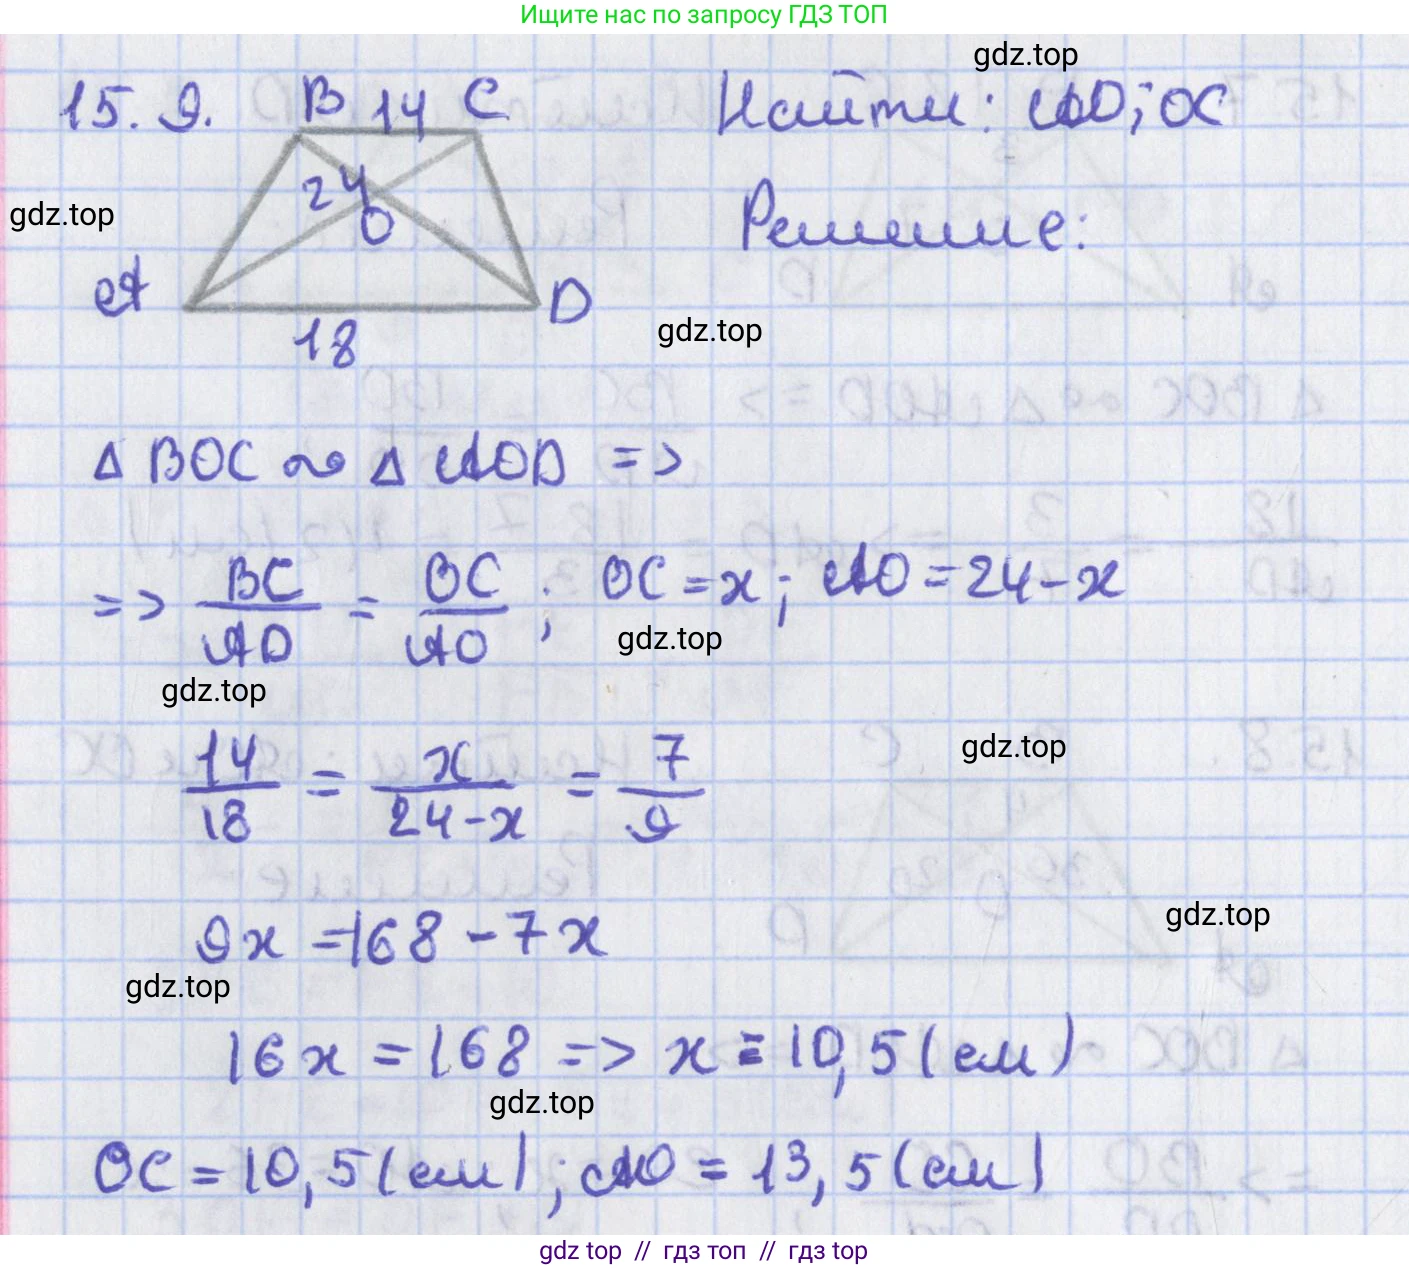 Ищите нас по запросу ГДЗ ТОП
gdz.top
15.9. B 14 C Найти: AO; OC
24
O
gdz.top
Решение:
A D
18
gdz.top
Δ BOC ∾ Δ AOD =>
=> BC/AD = OC/AO ; OC = x; AO = 24-x
gdz.top
gdz.top
14/18 = x/24-x = 7/9
gdz.top
9x = 168 - 7x
gdz.top
gdz.top
16x = 168 => x = 10,5 (см)
gdz.top
OC = 10,5 (см); AO = 13,5 (см)
gdz top // гдз топ // гдз top